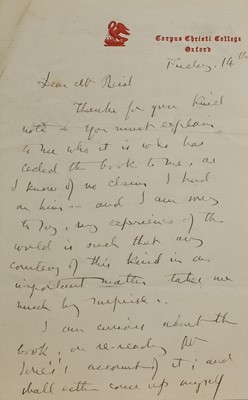 Corpus Christi College
Oxford
Friday, 14th
Dear Mr Reid
Thanks for your kind
note – You must explain
to me who it is who has
ceded the book to me, as
I know of no claim I had
on him – and I am sorry
to say, my experience of the
world is such that any
courtesy of this kind in an
important matter takes me
much by surprise.
I am curious about the
book, on re-reading Mr
account of it; and
shall either come up myself